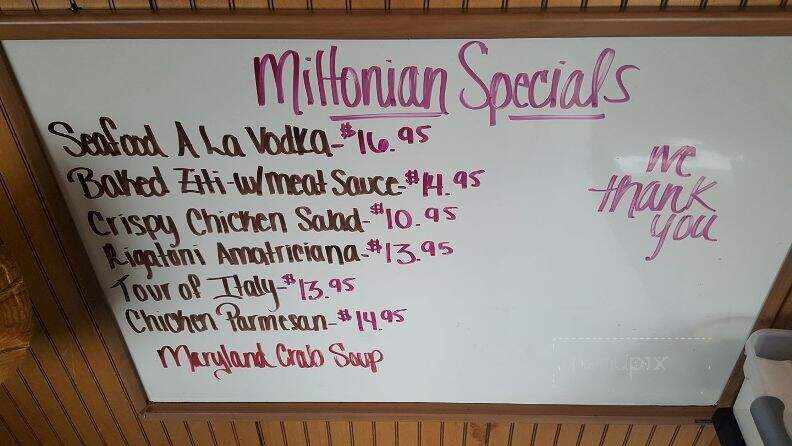 Miltonian Specials
Seafood A La Vodka-$16.95
Baked Ziti-w/meat Sauce-$14.95
Crispy Chicken Salad-$10.95
Rigatoni Amatriciana-$13.95
Tour of Italy-$13.95
Chicken Parmesan-$14.95
Maryland Crab Soup
we
thank
you